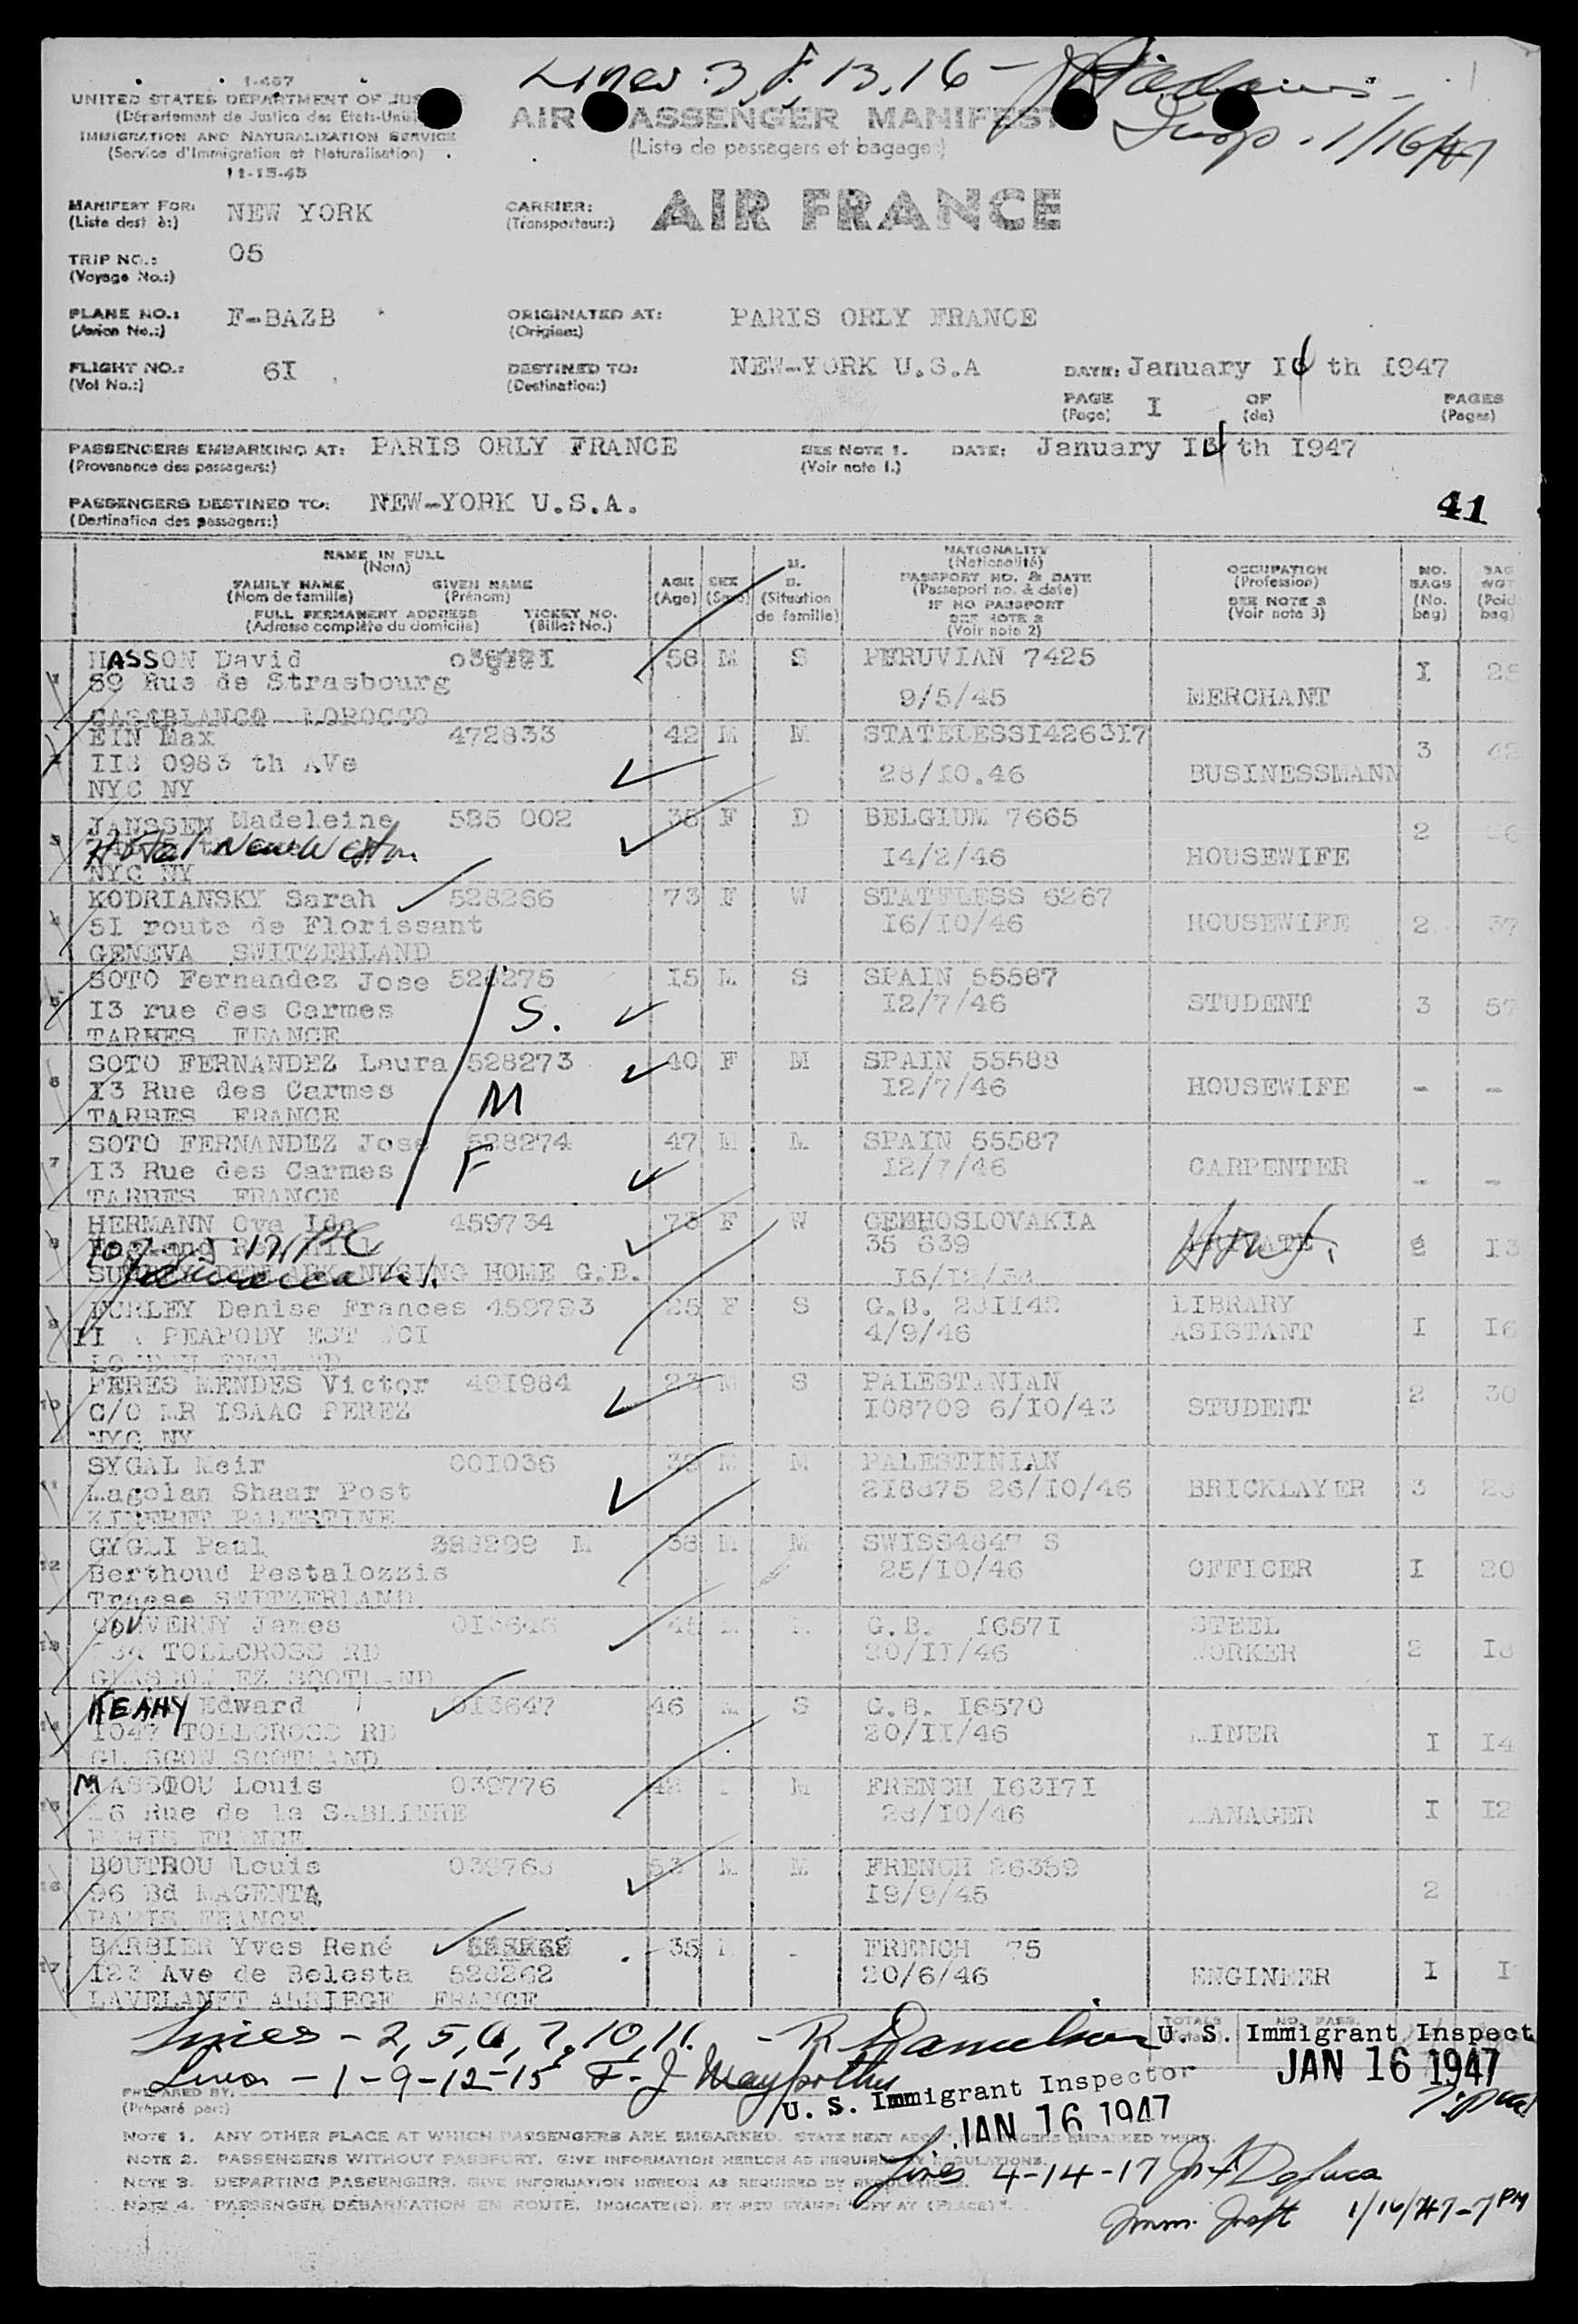 Lines 3, 8, 13, 16 -
Insp. 1/16/47
I-467
UNITED STATES DEPARTMENT OF JUS
(Département de Justice des Etats-Unis)
IMMIGRATION AND NATURALIZATION SERVICE
(Service d'Immigration et Naturalisation)
11-15-45
AIR PASSENGER MANIFEST
(Liste de passagers et bagages)
MANIFEST FOR: NEW YORK
(Liste dest à:)
CARRIER: AIR FRANCE
(Transporteur:)
TRIP NO.: 05
(Voyage No.:)
PLANE NO.: F-BAZB
(Avion No.:)
ORIGINATED AT: PARIS ORLY FRANCE
(Origine:)
FLIGHT NO.: 6I
(Vol No.:)
DESTINED TO: NEW-YORK U.S.A
(Destination:)
DATE: January I6 th I947
PAGE I OF PAGES
(Page) (de) (Pages)
PASSENGERS EMBARKING AT: PARIS ORLY FRANCE
(Provenance des passagers:)
SEE NOTE 1. DATE: January I th I947
(Voir note I.)
PASSENGERS DESTINED TO: NEW-YORK U.S.A.
(Destination des passagers:)
41
NAME IN FULL
(Nom)
FAMILY NAME GIVEN NAME
(Nom de famille) (Prénom)
FULL PERMANENT ADDRESS TICKET NO.
(Adresse complète du domicile) (Billet No.)
AGE
(Age)
SEX
(Sexe)
M.
S.
(Situation
de famille)
NATIONALITY
(Nationalité)
PASSPORT NO. & DATE
(Passeport no. & date)
IF NO PASSPORT
SEE NOTE 2
(Voir note 2)
OCCUPATION
(Profession)
SEE NOTE 3
(Voir note 3)
NO.
BAGS
(No.
bag)
BAG
WGT
(Poid
bag)
1 HASSON David 58 M S PERUVIAN 7425 I 25
59 Rue de Strasbourg 9/5/45 MERCHANT
CASABLANCA MOROCCO
2 EIN Max 472833 42 M M STATELESSI4263I7 3
0983 th AVe 28/I0.46 BUSINESSMANN
NYC NY
3 JANSSEN Madeleine 585 002 35 F D BELGIUM 7665 2
Hotel New Weston I4/2/46 HOUSEWIFE
NYC NY
4 KODRIANSKY Sarah 528266 73 F W STATELESS 6267
5I route de Florissant I6/I0/46 HOUSEWIFE 2 57
GENEVA SWITZERLAND
5 SOTO Fernandez Jose 528275 I5 M S SPAIN 55587
I3 rue des Carmes S. I2/7/46 STUDENT 3 57
TARBES FRANCE
6 SOTO FERNANDEZ Laura 528273 40 F M SPAIN 55588
I3 Rue des Carmes I2/7/46 HOUSEWIFE - -
TARBES FRANCE M
7 SOTO FERNANDEZ Jose 528274 47 M M SPAIN 55587
I3 Rue des Carmes F I2/7/46 CARPENTER - -
TARBES FRANCE
8 HERMANN Ida 459734 73 F W CEHHOSLOVAKIA
35 639 2 I3
NUSING HOME G.B.
Jamaica
9 Denise Frances 459793 25 F S G.B. 28II42 LIBRARY
II PEABODY EST 4/9/46 ASISTANT I I6
LONDON ENGLAND
10 PERES MENDES Victor 49I984 23 M S PALESTINIAN 2 30
C/O MR ISAAC PEREZ I08709 6/I0/43 STUDENT
NYC NY
11 SYGAL Meir 00I036 M M PALESTINIAN
Lagolan Shaar Post 2I8875 26/I0/46 BRICKLAYER 3
KINERET PALESTINE
12 GYGLI Paul 398299 M 38 M M SWISS4847 S
Berthoud Pestalozzis 25/I0/46 OFFICER I 20
Trasse SWITZERLAND
13 James G.B. I657I STEEL
TOLLCROSS RD 20/II/46 WORKER 2 I8
GLASGOW EZ SCOTLAND
14 KEAHY Edward 0I3647 46 M S G.B. I6570
I047 TOLLCROSS RD 20/II/46 MINER I I4
GLASGOW SCOTLAND
15 MASSIOU Louis 039776 M FRENCH I63I7I
Rue de la SABLIERE 28/I0/46 MANAGER I I2
PARIS FRANCE
16 BOUTROU Louis 53 M M FRENCH 26359
96 Bd MAGENTA I9/9/45 2
PARIS FRANCE
17 BARBIER Yves René 35 FRENCH 75
I23 Ave de Belesta 528262 20/6/46 ENGINEER I
LAVELANET ARRIEGE FRANCE
Lines - 2, 5, 6, 7, 10, 11. - R
TOTALS NO. PASS.
U. S. Immigrant Inspect
JAN 16 1947
Lines - 1 - 9 - 12 - 15 F. J.
U. S. Immigrant Inspector
JAN 16 1947
PREPARED BY:
(Préparé par:)
NOTE 1. ANY OTHER PLACE AT WHICH PASSENGERS ARE EMBARKED. STATE NEXT ABOVE PASSENGERS EMBARKED THERE.
NOTE 2. PASSENGERS WITHOUT PASSPORT. GIVE INFORMATION HEREON AS REQUIRED BY REGULATIONS.
NOTE 3. DEPARTING PASSENGERS. GIVE INFORMATION HEREON AS REQUIRED BY REGULATIONS.
NOTE 4. PASSENGER DEBARKATION EN ROUTE. INDICATE(D). BY RED STAMP: "OFF AT (PLACE)".
Lines 4-14-17
1/16/47-7PM